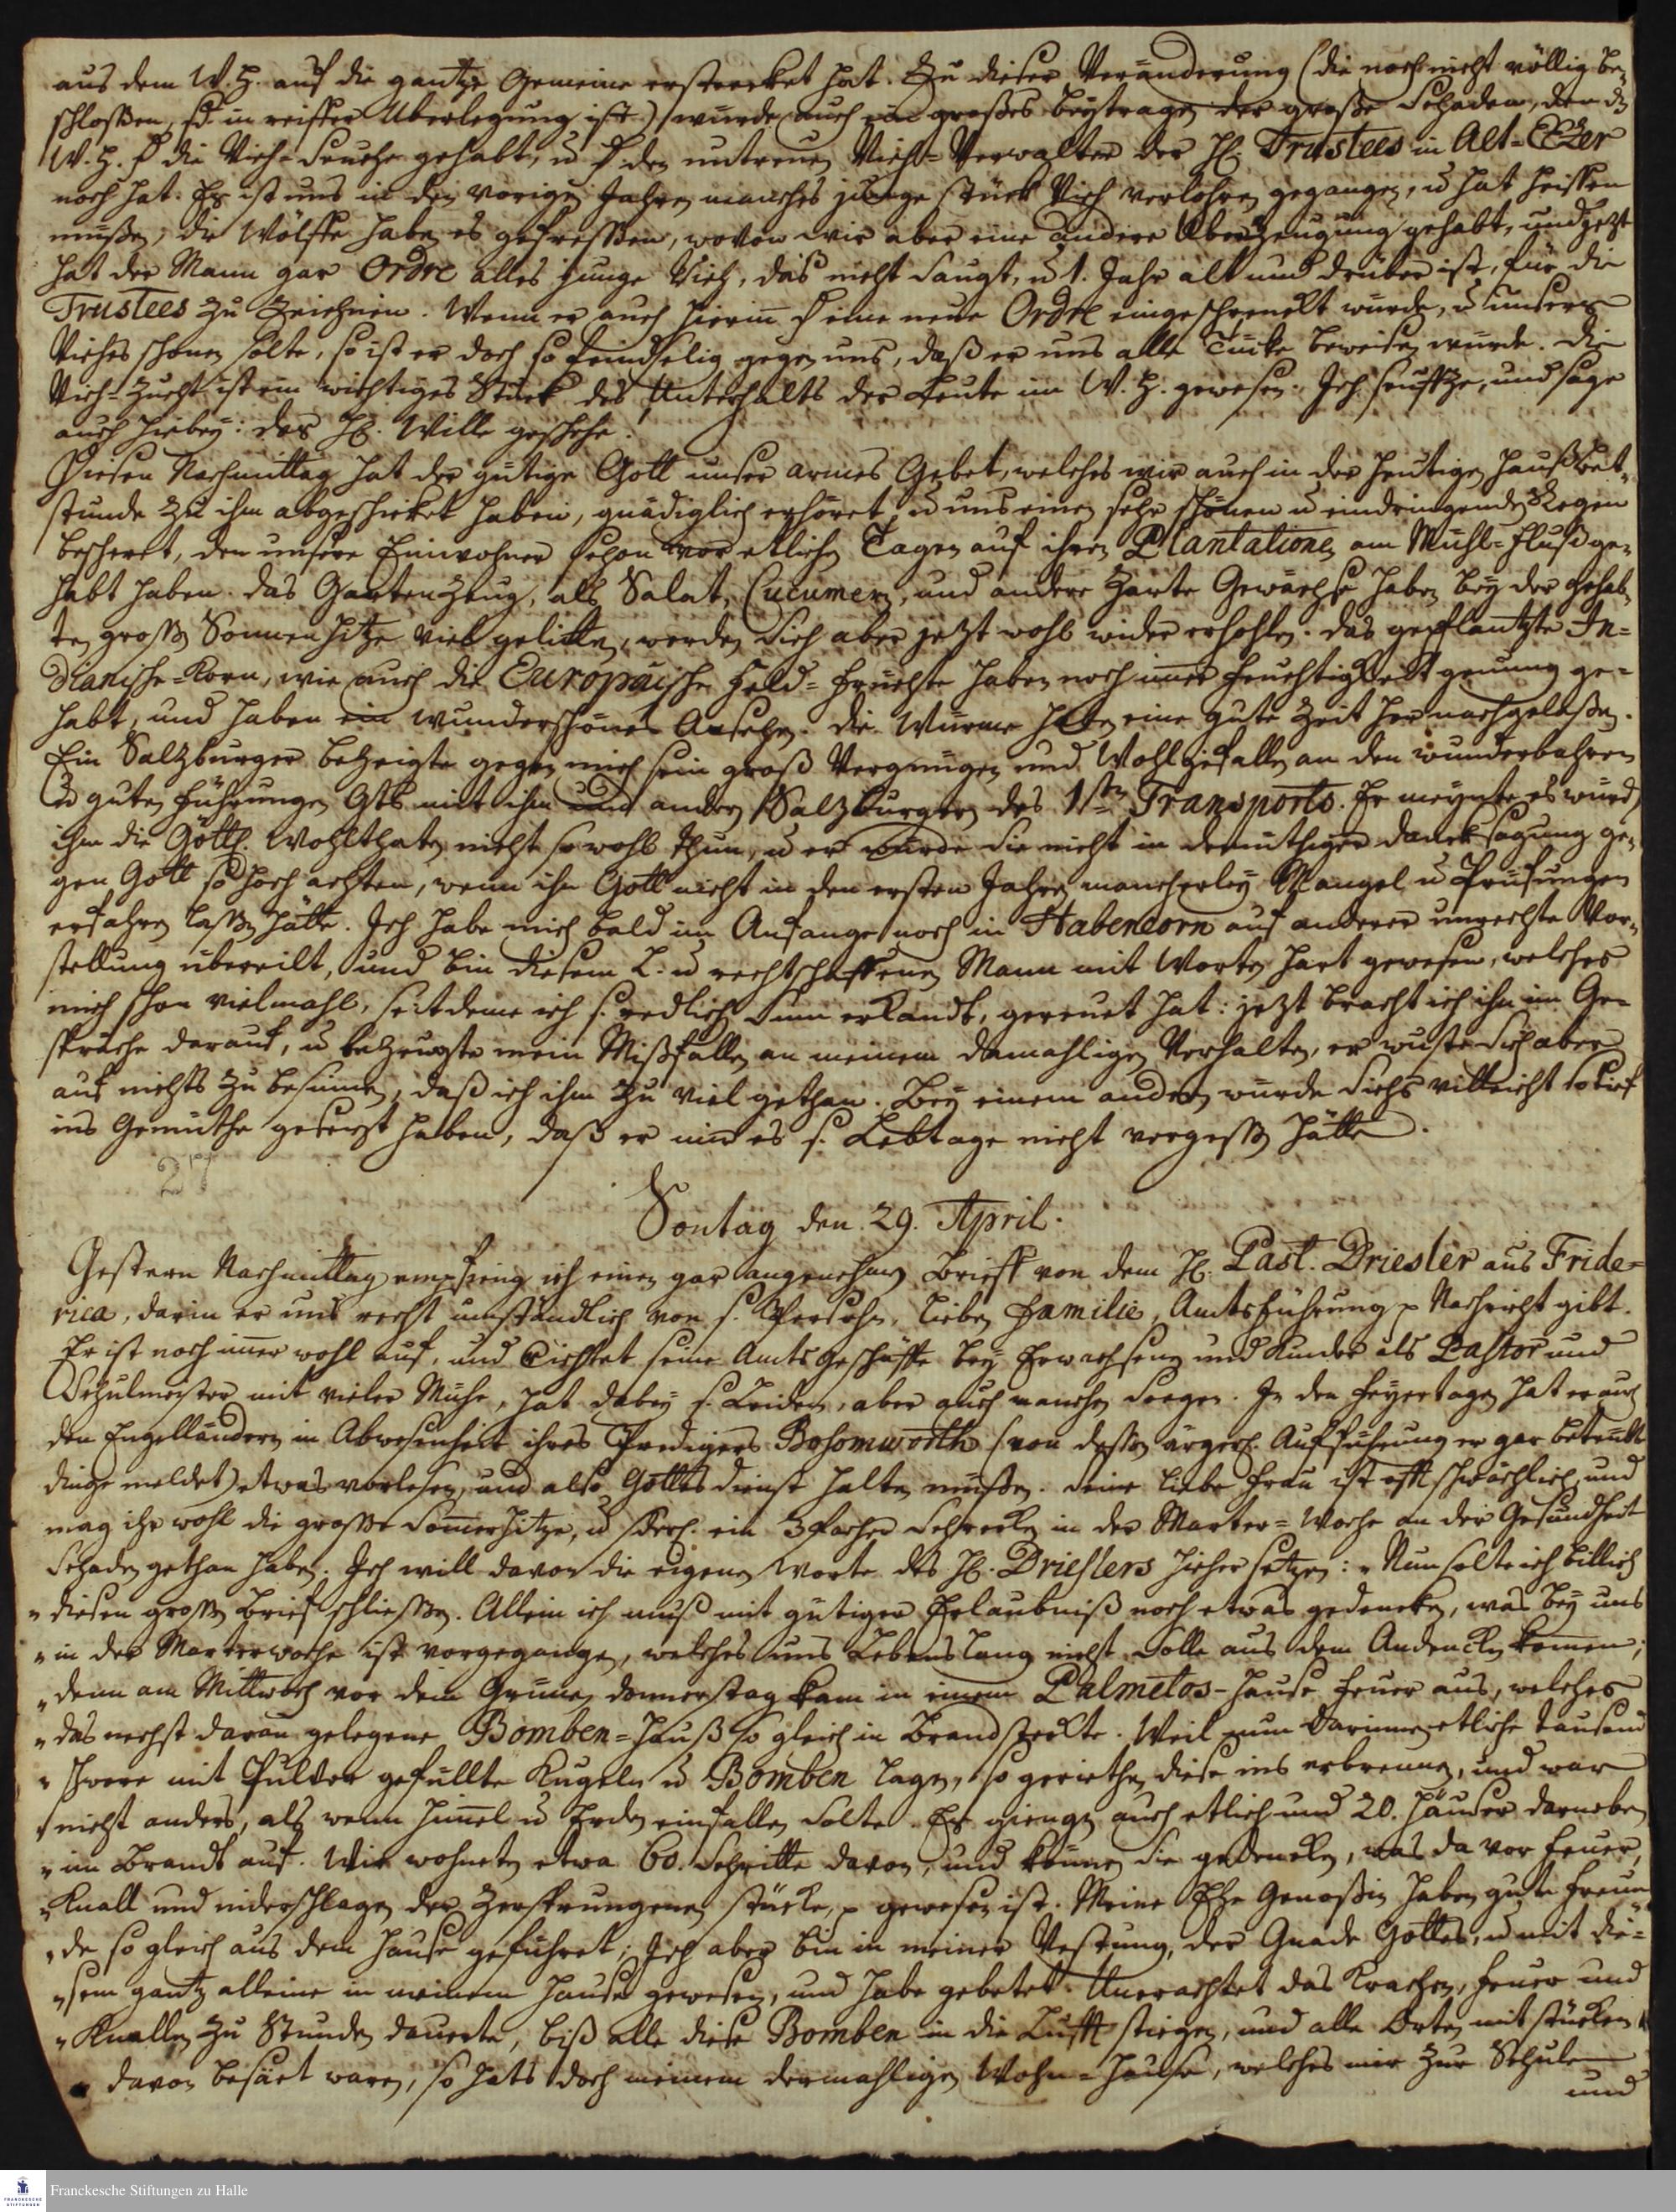 aus dem W. H. auf die gantze Gemeine erstrecket hat. Zu dieser Veränderung (die noch nicht völlig be-
schloßen, sd. in reiffer Uberlegung ist) würde auch ein großes beytragen der große Schaden, den dz
W. H. d die Vieh-Seuche gehabt, u. d den untreuen Vieh-Verwalter der H. Trustees in Alt-Ebenezer
noch hat. Es ist uns in den vorigen Jahren manches junge stück Vieh verlohren gegangen, u. hat heissen
müßen, die Wölffe haben es gefressen, wovon wir aber eine andere Überzeugung gehabt, und jetzt
hat der Mann gar Ordre alles junge Vieh, das nicht saugt, u. 1. Jahr alt und drüber ist, für die
Trustees zu zeichnen. Wenn er auch hierin d eine neue Ordre eingeschrenckt würde, u. unsers
Viehes schonen solte, so ist er doch so feindselig gegen uns, daß er uns alle Tücke beweisen würde. Die
Vieh-Zucht ist ein wichtiges Stück des Unterhalts der Leute im W. H. gewesen. Ich seuftze, und sage
auch hiebey: des H. Wille geschehe.
Diesen Nachmittag hat der gütige Gott unser armes Gebet, welches wir auch in der heutigen Hauß-Bet-
stunde zu ihm abgeschicket haben, gnädiglich erhöret, u. uns einen sehr schönen u. eindringenden Regen
bescheret, den unsere Einwohner schon vor etlichen Tagen auf ihren Plantationen am Mühl-Fluß ge-
habt haben. Das Gartenzeug, als Salat, Cucumern, und andere zarte Gewächse haben bey der gehab-
ten großen Sonnenhitze viel gelitten, werden sich aber jetzt wohl wider erhohlen. Das gepflantzte In-
dianische-Korn, wie auch die Europäische Feld-Früchte haben noch imer Feuchtigkeit genung ge-
habt, und haben ein wunderschönes Ansehen. Die Würme haben eine gute Zeit her nachgelaßen.
Ein Saltzburger bezeigte gegen mich sein groß Vergnügen und Wohlgefallen an den wunderbahren
u. guten Führungen Gottes mit ihm und andern Saltzburgern des 1sten Transports. Er meynte es würde
ihm die Göttl. Wohlthaten nicht so wohl thun, u. er würde sie nicht in demüthiger Dancksagung ge-
gen Gott so hoch achten, wenn ihn Gott nicht in den ersten Jahren mancherley Mangel u. Prüfungen
erfahren laßen hätte. Ich habe mich bald im Anfange noch in Habencorn auf anderer unrechte Vor-
stellung übereilt, und bin diesem L. u. rechtschaffenen Mann mit Worten hart gewesen, welches
mich schon vielmahl, seitdeme ich s. redlich. Sinn erkandt, gereuet hat: jetzt bracht ich ihn im Ge-
spräche darauf, u. bezeugte mein Mißfallen an meinem damahligen Verhalten, er wuste sich aber
auf nichts zu besinnen, daß ich ihm zu viel gethan. Bey einem andern würde sichs villeicht so tief
ins Gemüthe gesetzt haben, daß er mir es s. Lebtage nicht vergeßen hätte.
27
Sontag den 29. April.
Gestern Nachmittag empfieng ich einen gar angenehmen Brieff von dem H. Past. Driesler aus Fride-
rica, darin er uns recht umständlich von s. Persohn, lieben Familie, Amtsführung p Nachricht gibt.
Er ist noch imer wohl auf, und richtet seine Amtsgeschäffte bey Erwachsenen und Kinder als Pastor und
Schulmeister mit vieler Mühe, hat dabey s. Leiden, aber auch manchen Seegen. In den Feyertagen hat er auch
den Engelländern in Abwesenheit ihres Predigers Bosomworth (von deßen ärgerl. Aufführung er gar betrübte
dinge meldet) etwas vorlesen, und also Gottesdienst halten müßen. Seine liebe Frau ist offt schwächlich, und
mag ihr wohl die große Somerhitze, u. sonderl. ein 3facher Schrecken in der Marter-Woche an der Gesundheit
Schaden gethan haben. Ich will davon die eigenen Worte des H. Drieslers hieher setzen: „Nun solte ich billich
„diesen großen Brief schließen. Allein ich muß mit gütiger Erlaubniß noch etwas gedencken, was bey uns
„in der Marterwoche ist vorgegangen, welches uns Lebenslang nicht solle aus dem Andencken komen;
„denn am Mittwoch vor dem Grünen Donnerstag kam in einem Palmetos-Hause Feuer aus, welches
„das nechst daran gelegene Bomben-Hauß so gleich in Brand steckte. Weil nun darinnen etliche tausend
„schwere mit Pulver gefüllte Kugeln u. Bomben lagen, so geriethen diese ins erbrennen, und war
„nicht anders, als wenn Himel u. Erden einfallen solte. Es giengen auch etlich und 20. Häuser darneben
„im Brandt auf. Wir wohneten etwa 60. Schritte davon, und können sie gedencken, was da vor Feuer,
„Knall und niderschlagen der zersprungenen stücke, p gewesen ist. Meine Ehe Genoßin haben gute Freun-
„de so gleich aus dem Hause geführet; Ich aber bin in meiner Vestung, der Gnade Gottes, u. mit die-
„sem gantz alleine in meinem Hause gewesen, und habe gebetet. Unerachtet das Krachen, Feuer und
„Knallen zu Stunden dauerte, biß alle diese Bomben in die Lufft stiegen, und alle Orten mit stücken
„davon besäet waren, so hats doch meinem dermahligen Wohn-Hause, welches mir zur Schule
und
Franckesche Stiftungen zu Halle